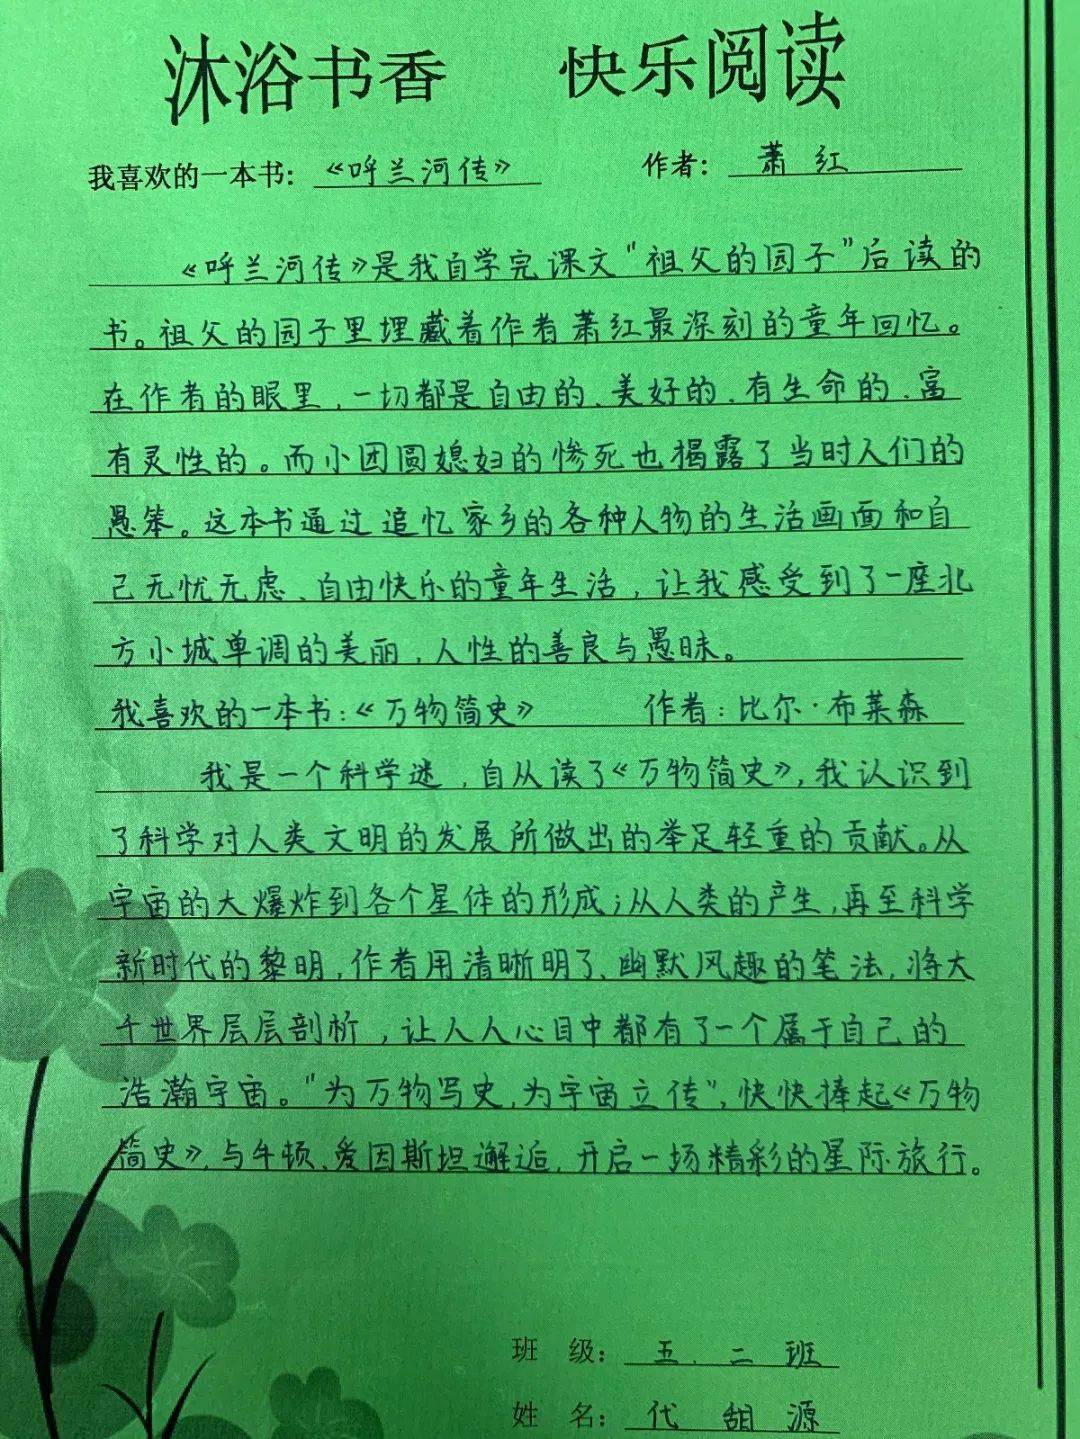 沐浴书香 快乐阅读
我喜欢的一本书：《呼兰河传》 作者：萧红
《呼兰河传》是我自学完课文"祖父的园子"后读的
书。祖父的园子里埋藏着作者萧红最深刻的童年回忆。
在作者的眼里，一切都是自由的、美好的、有生命的、富
有灵性的。而小团圆媳妇的惨死也揭露了当时人们的
愚笨。这本书通过追忆家乡的各种人物的生活画面和自
己无忧无虑、自由快乐的童年生活，让我感受到了一座北
方小城单调的美丽，人性的善良与愚昧。
我喜欢的一本书：《万物简史》 作者：比尔·布莱森
我是一个科学迷，自从读了《万物简史》，我认识到
了科学对人类文明的发展所做出的举足轻重的贡献。从
宇宙的大爆炸到各个星体的形成；从人类的产生，再至科学
新时代的黎明，作者用清晰明了、幽默风趣的笔法，将大
千世界层层剖析，让人人心目中都有了一个属于自己的
浩瀚宇宙。"为万物写史，为宇宙立传"，快快捧起《万物
简史》，与牛顿、爱因斯坦邂逅，开启一场精彩的星际旅行。
班 级：五．二班
姓 名：代 甜 源